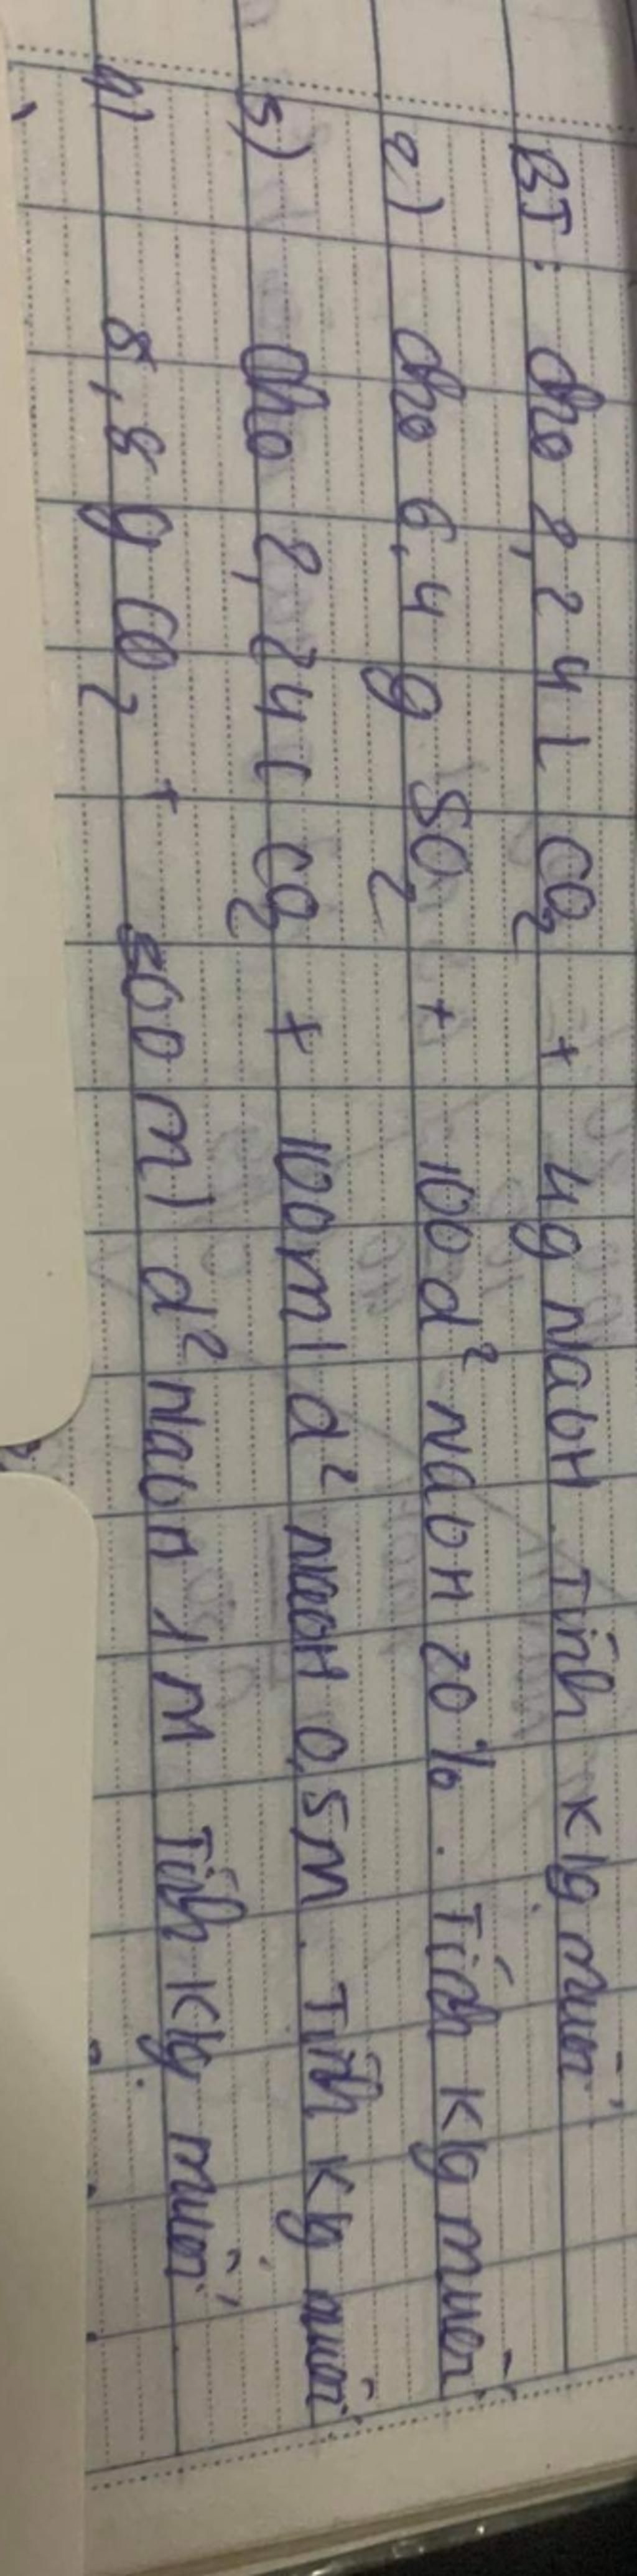 BT: Cho 2,24 l CO2 + 4g NaOH. Tính klg muối.
2) Cho 6,4 g SO2 + 100 d² NaOH 20%. Tính klg muối.
3) Cho 2,24 l CO2 + 100 ml d² NaOH 0,5M. Tính klg muối.
4) 8,8 g CO2 + 300 ml d² NaOH 1M Tính klg muối.